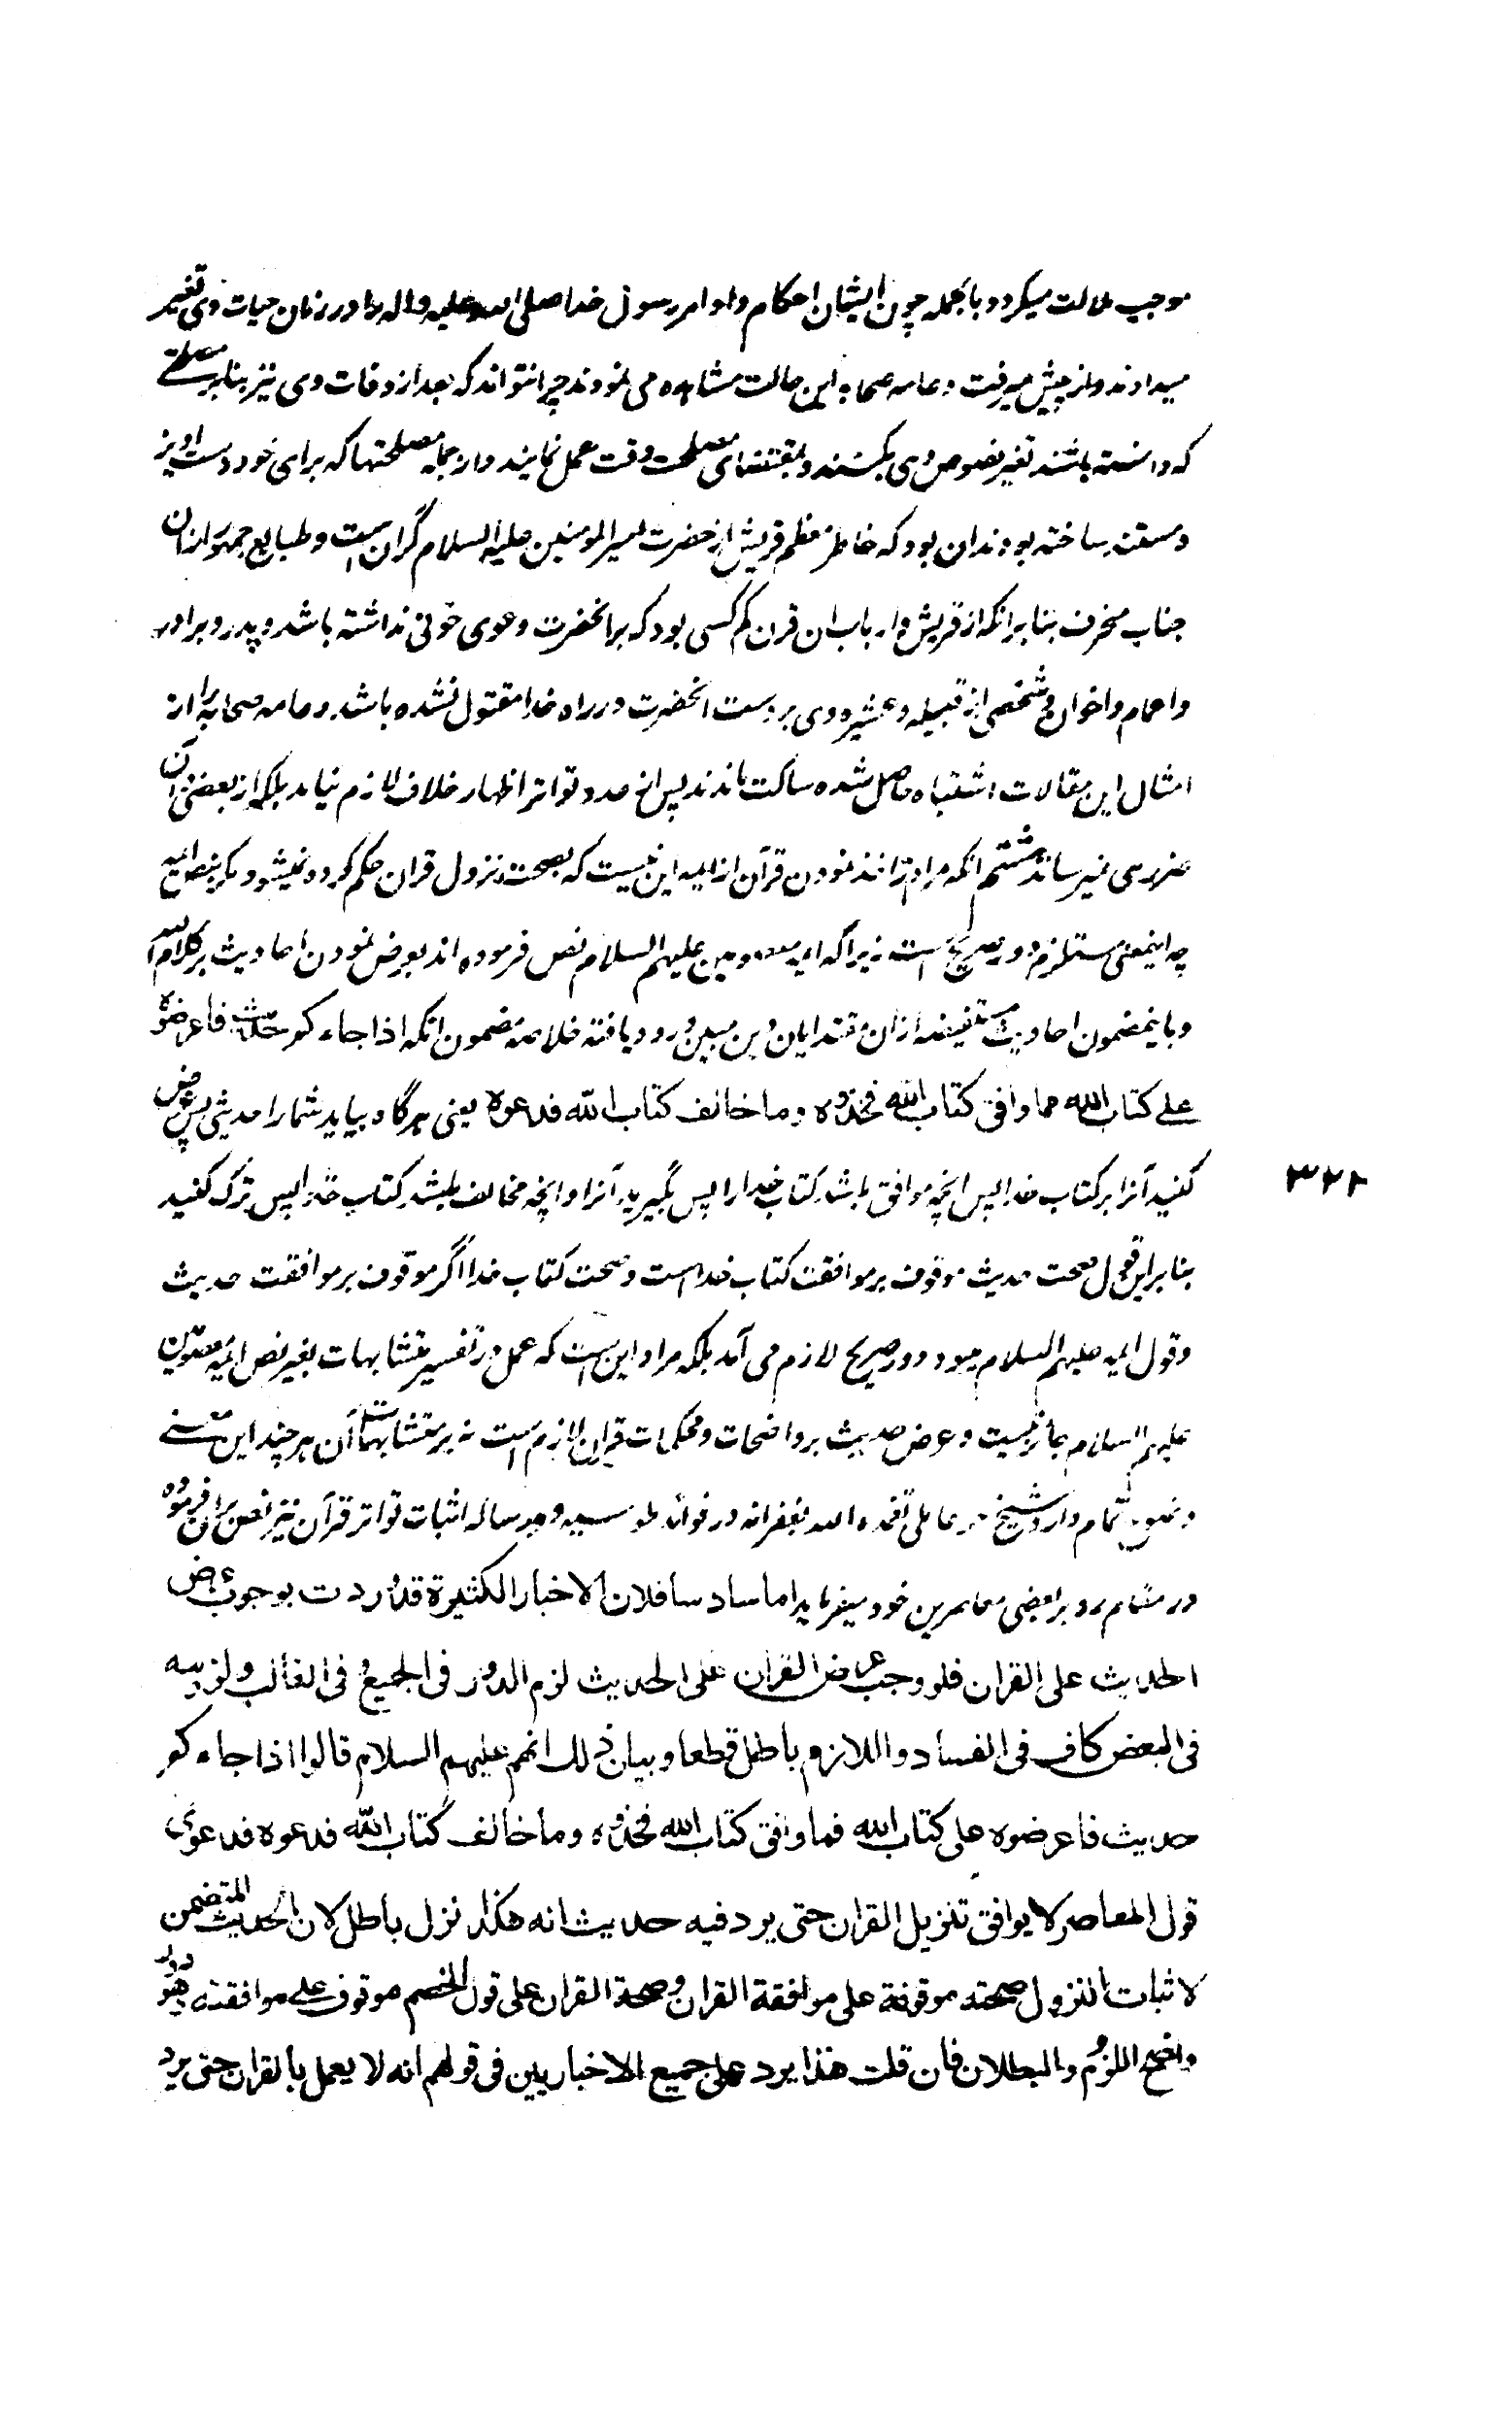 موجب ملالت میکردد و بالجمله چون ایشان احکام و اوامر رسول خدا صلی الله علیه واله را در زمان حیات وی تغییر
میدادند و از پیش میرفت و عامه صحابه این حالت مشاهده می نمودند چرا نتواند که بعد از وفات وی نیز بنا بر مصلحتی
که دانسته باشند تغییر نصوص وی بکنند و بمقتضای مصلحت وقت عمل نمایند و از جمله مصلحتها که برای خود دست اویز
ساخته بودند ان بود که خاطر معظم قریش از حضرت امیر المومنین علیه السلام گران است و طبایع جمهور ازان
جناب منحرف بنا برانکه از قریش و ارباب ان قرن کم کسی بود که بر انحضرت دعوی خونی نداشته باشد و پدر و برادر
و اعمام و اخوان و شخصی از قبیله و عشیره وی بر دست انحضرت در راه خدا مقتول نشده باشد و عامه صحابه را از
امثال این مقالات اشتباه حاصل شده ساکت ماندند پس از حد تواتر اظهار خلاف لازم نیاید بلکه از بعضی آن
ضرری نمیرساند هشتم انکه مراد از اخذ نمودن قرآن از ایمه این نیست که بصحت نزول قران حکم کرده نمیشود مگر بنص ایمه
چه اینمعنی مستلزم دور صریح است زیرا که ایمه معصومین علیهم السلام نص فرموده اند بعرض نمودن احادیث بر کلام الله
و باینمضمون احادیث مستفیضه ازان مقتدایان دین مبین ورود یافته خلاصه مضمون انکه اذا جاءکم حدیث فاعرضوه
علی کتاب الله فما وافق کتاب الله فخذوه وما خالف کتاب الله فدعوه یعنی هرگاه بیاید شما را حدیثی پس عرض
کنید آنرا بر کتاب خدا پس انچه موافق باشد کتاب خدا را پس بگیرید آنرا و انچه مخالف باشد کتاب خدا پس ترک کنید
۳۲۲
بنا براین قول صحت حدیث موقوف بر موافقت کتاب خداست و صحت کتاب خدا اگر موقوف بر موافقت حدیث
و قول ایمه علیهم السلام میبود دور صریح لازم می آمد بلکه مراد این است که عمل در تفسیر متشابهات بغیر نص ایمه معصومین
علیهم السلام جایز نیست و عرض حدیث بر واضحات و محکمات قران لازم است نه بر متشابهات آن هرچند این
تمام دارد شیخ حر عاملی تغمده الله بغفرانه در فوائد طوسیه و در رساله اثبات تواتر قرآن نیز نص بران فرموده
در مقام رد بر بعضی معاصرین خود میفرماید اما سادسا فلان الاخبار الکثیرة قد وردت بوجوب عرض
الحدیث علی القران فلو وجب عرض القران علی الحدیث لزم الدور فی الجمیع او فی الغالب و لزومه
فی البعض کاف فی الفساد و اللازم باطل قطعا و بیان ذلک انهم علیهم السلام قالوا اذا جاءکم
حدیث فاعرضوه علی کتاب الله فما وافق کتاب الله فخذوه وما خالف کتاب الله فدعوه فدعوی
قول المعاصر لا یوافق تنزیل القران حتی یرد فیه حدیث انه هکذا نزل باطل لان الحدیث المتضمن
لاثبات النزول صحته موقوفة علی موافقة القران وصحة القران علی قول الخصم موقوف علی موافقته فهو دور
واضح اللزوم والبطلان فان قلت هذا یرد علی جمیع الاخباریین فی قولهم انه لا یعمل بالقران حتی یرد